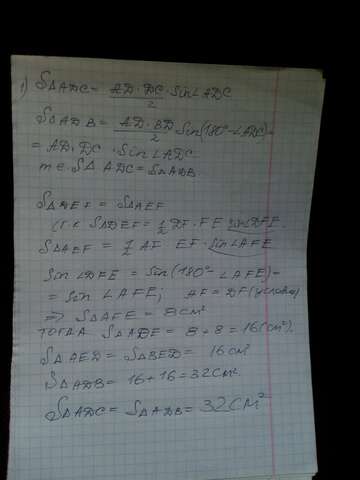 1) S△ADC = AD·DC/2 · sin∠ADC
S△ADB = AD·BD/2 · Sin(180°-∠ADC)=
= AD·DC · sin∠ADC
т.е. S△ADC = S△ADB
S△DEF = S△AEF
(т.к S△DEF = 1/2 DF·FE sin∠DFE.
S△AEF = 1/2 AF EF·sin∠AFE
Sin∠DFE = Sin(180°-∠AFE)=
= Sin∠AFE; AF = DF(условие)
⇒ S△AFE = 8см²
тогда S△ADE = 8+8=16(см²).
S△AED = S△BED = 16см²
S△ADB = 16+16=32см².
S△ADC = S△ADB = 32см²